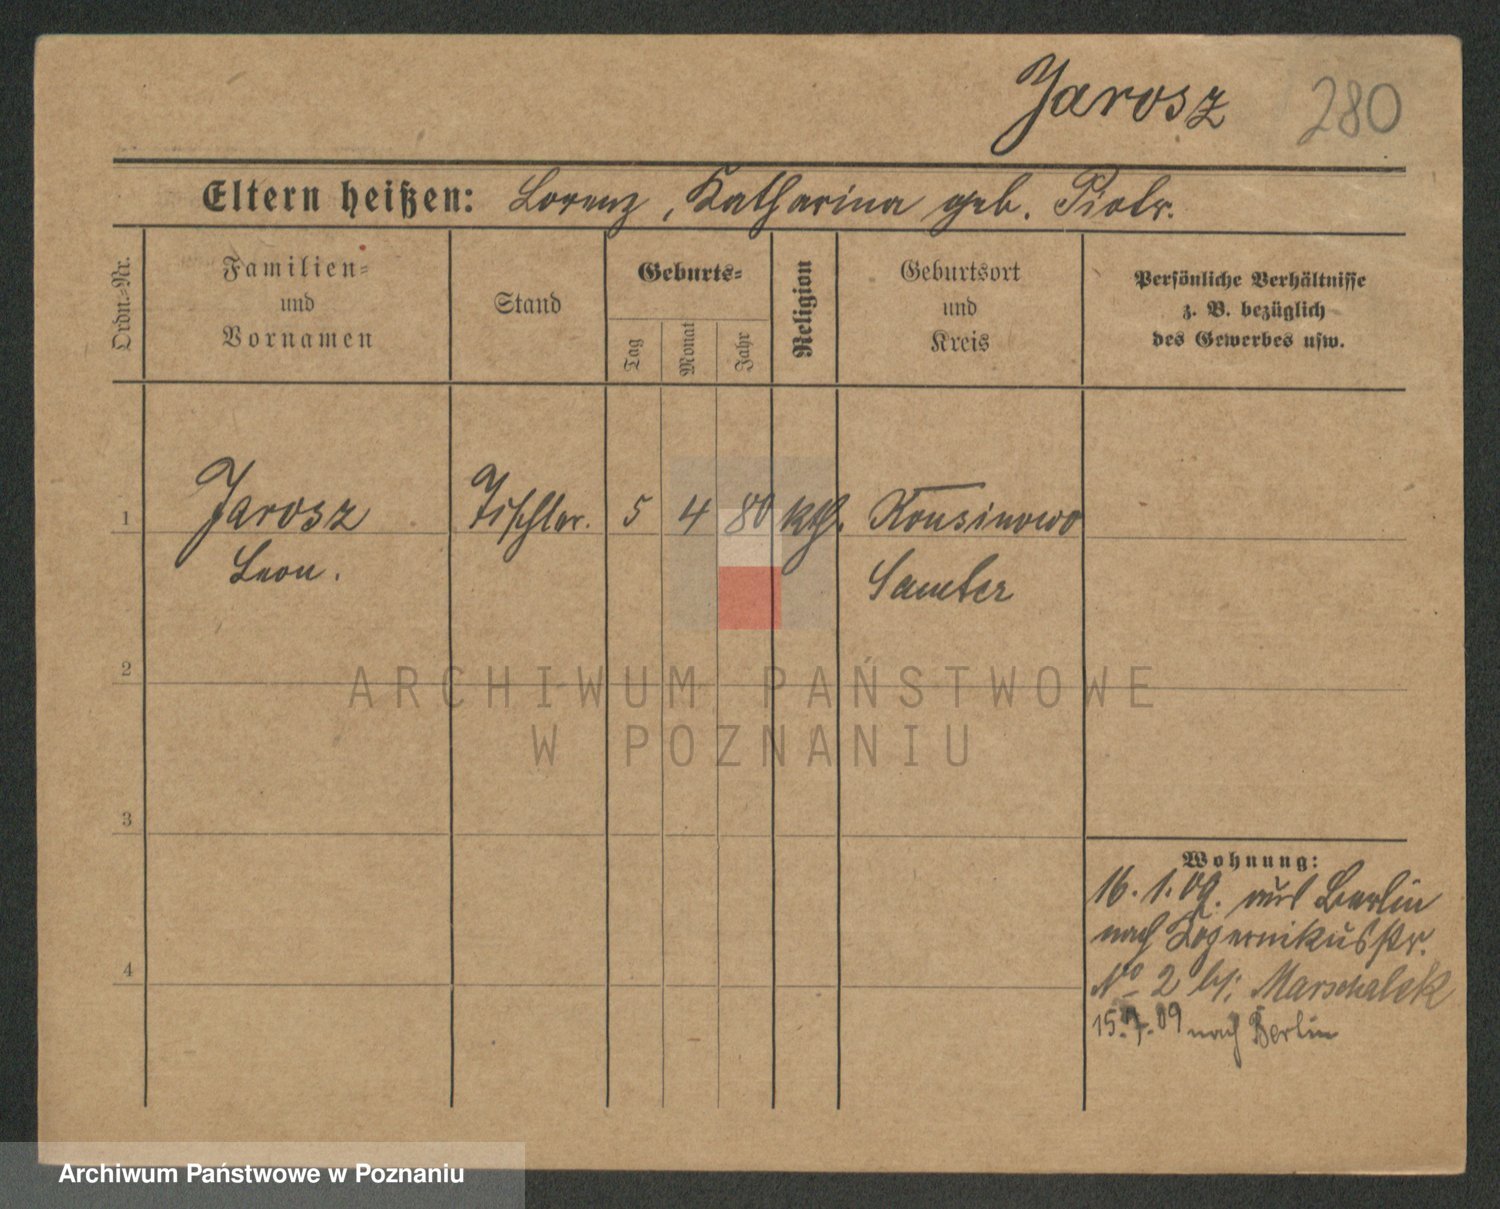 Jarosz 280
Eltern heißen: Lorenz, Katharina geb. Piotr.
Ordn.-Nr.
Familien-
und
Vornamen
Stand
Geburts-
Tag
Monat
Jahr
Religion
Geburtsort
und
Kreis
Persönliche Verhältnisse
z. B. bezüglich
des Gewerbes usw.
1 Jarosz Tischler. 5 4 80 kth. Konsinowo
Leon. Samter
2
ARCHIWUM PAŃSTWOWE
W POZNANIU
3
Wohnung:
16. 1. 09. aus Berlin
nach Kopernikusstr.
No 2 bei Marschalek
4
15.7.09 nach Berlin
Archiwum Państwowe w Poznaniu